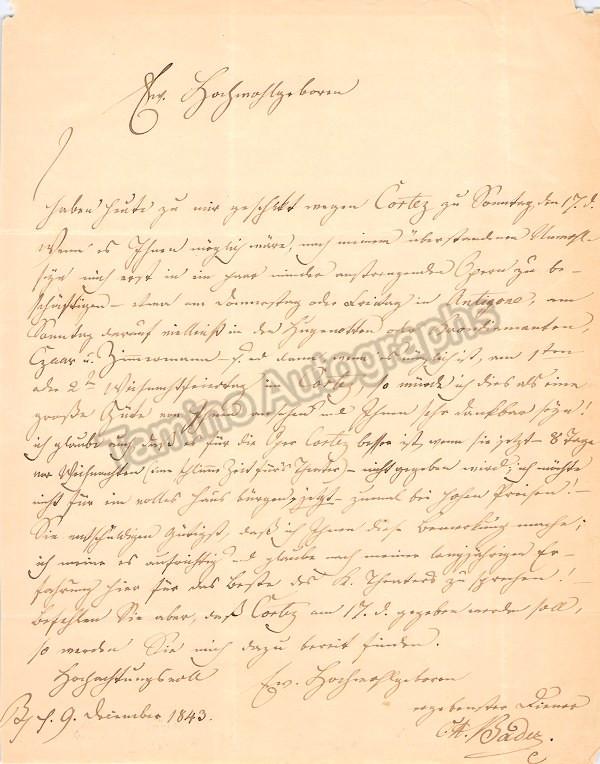 Ew. Hochwohlgeboren
haben heute zu mir geschickt wegen Cortez zu Sonntag, den 17. d.
Wenn es Ihnen möglich wäre, nach meinem überstandenen Unwohl-
seyn mich erst in ein paar minder anstrengenden Opern zu be-
schäftigen – etwa am Donnerstag oder Freitag in Antigone, am
Sonntag darauf vielleicht in den Hugenotten oder
Czaar u. Zimmermann – und dann, wenn es möglich ist, am 1sten
oder 2ten Weihnachtsfeiertag im Cortez, so würde ich dies als eine
große Güte von Ihnen ansehen und Ihnen sehr dankbar seyn!
ich glaube auch, dass es für die Oper Cortez besser ist, wenn sie jetzt – 8 Tage
vor Weihnachten (eine schlimme Zeit für's Theater) – nicht gegeben wird; ich möchte
nicht für ein volles Haus bürgen, jetzt – zumal bei hohen Preisen! –
Sie entschuldigen gütigst, daß ich Ihnen diese Bemerkung mache;
ich meine es aufrichtig und glaube nach meiner langjährigen Er-
fahrung hier für das Beste des K. Theaters zu sprechen! –
befehlen Sie aber, daß Cortez am 17. d. gegeben werden soll,
so werden Sie mich dazu bereit finden.
Hochachtungsvoll
Ew. Hochwohlgeboren
ergebenster Diener
Bader.
9. December 1843.
Tamino Autographs